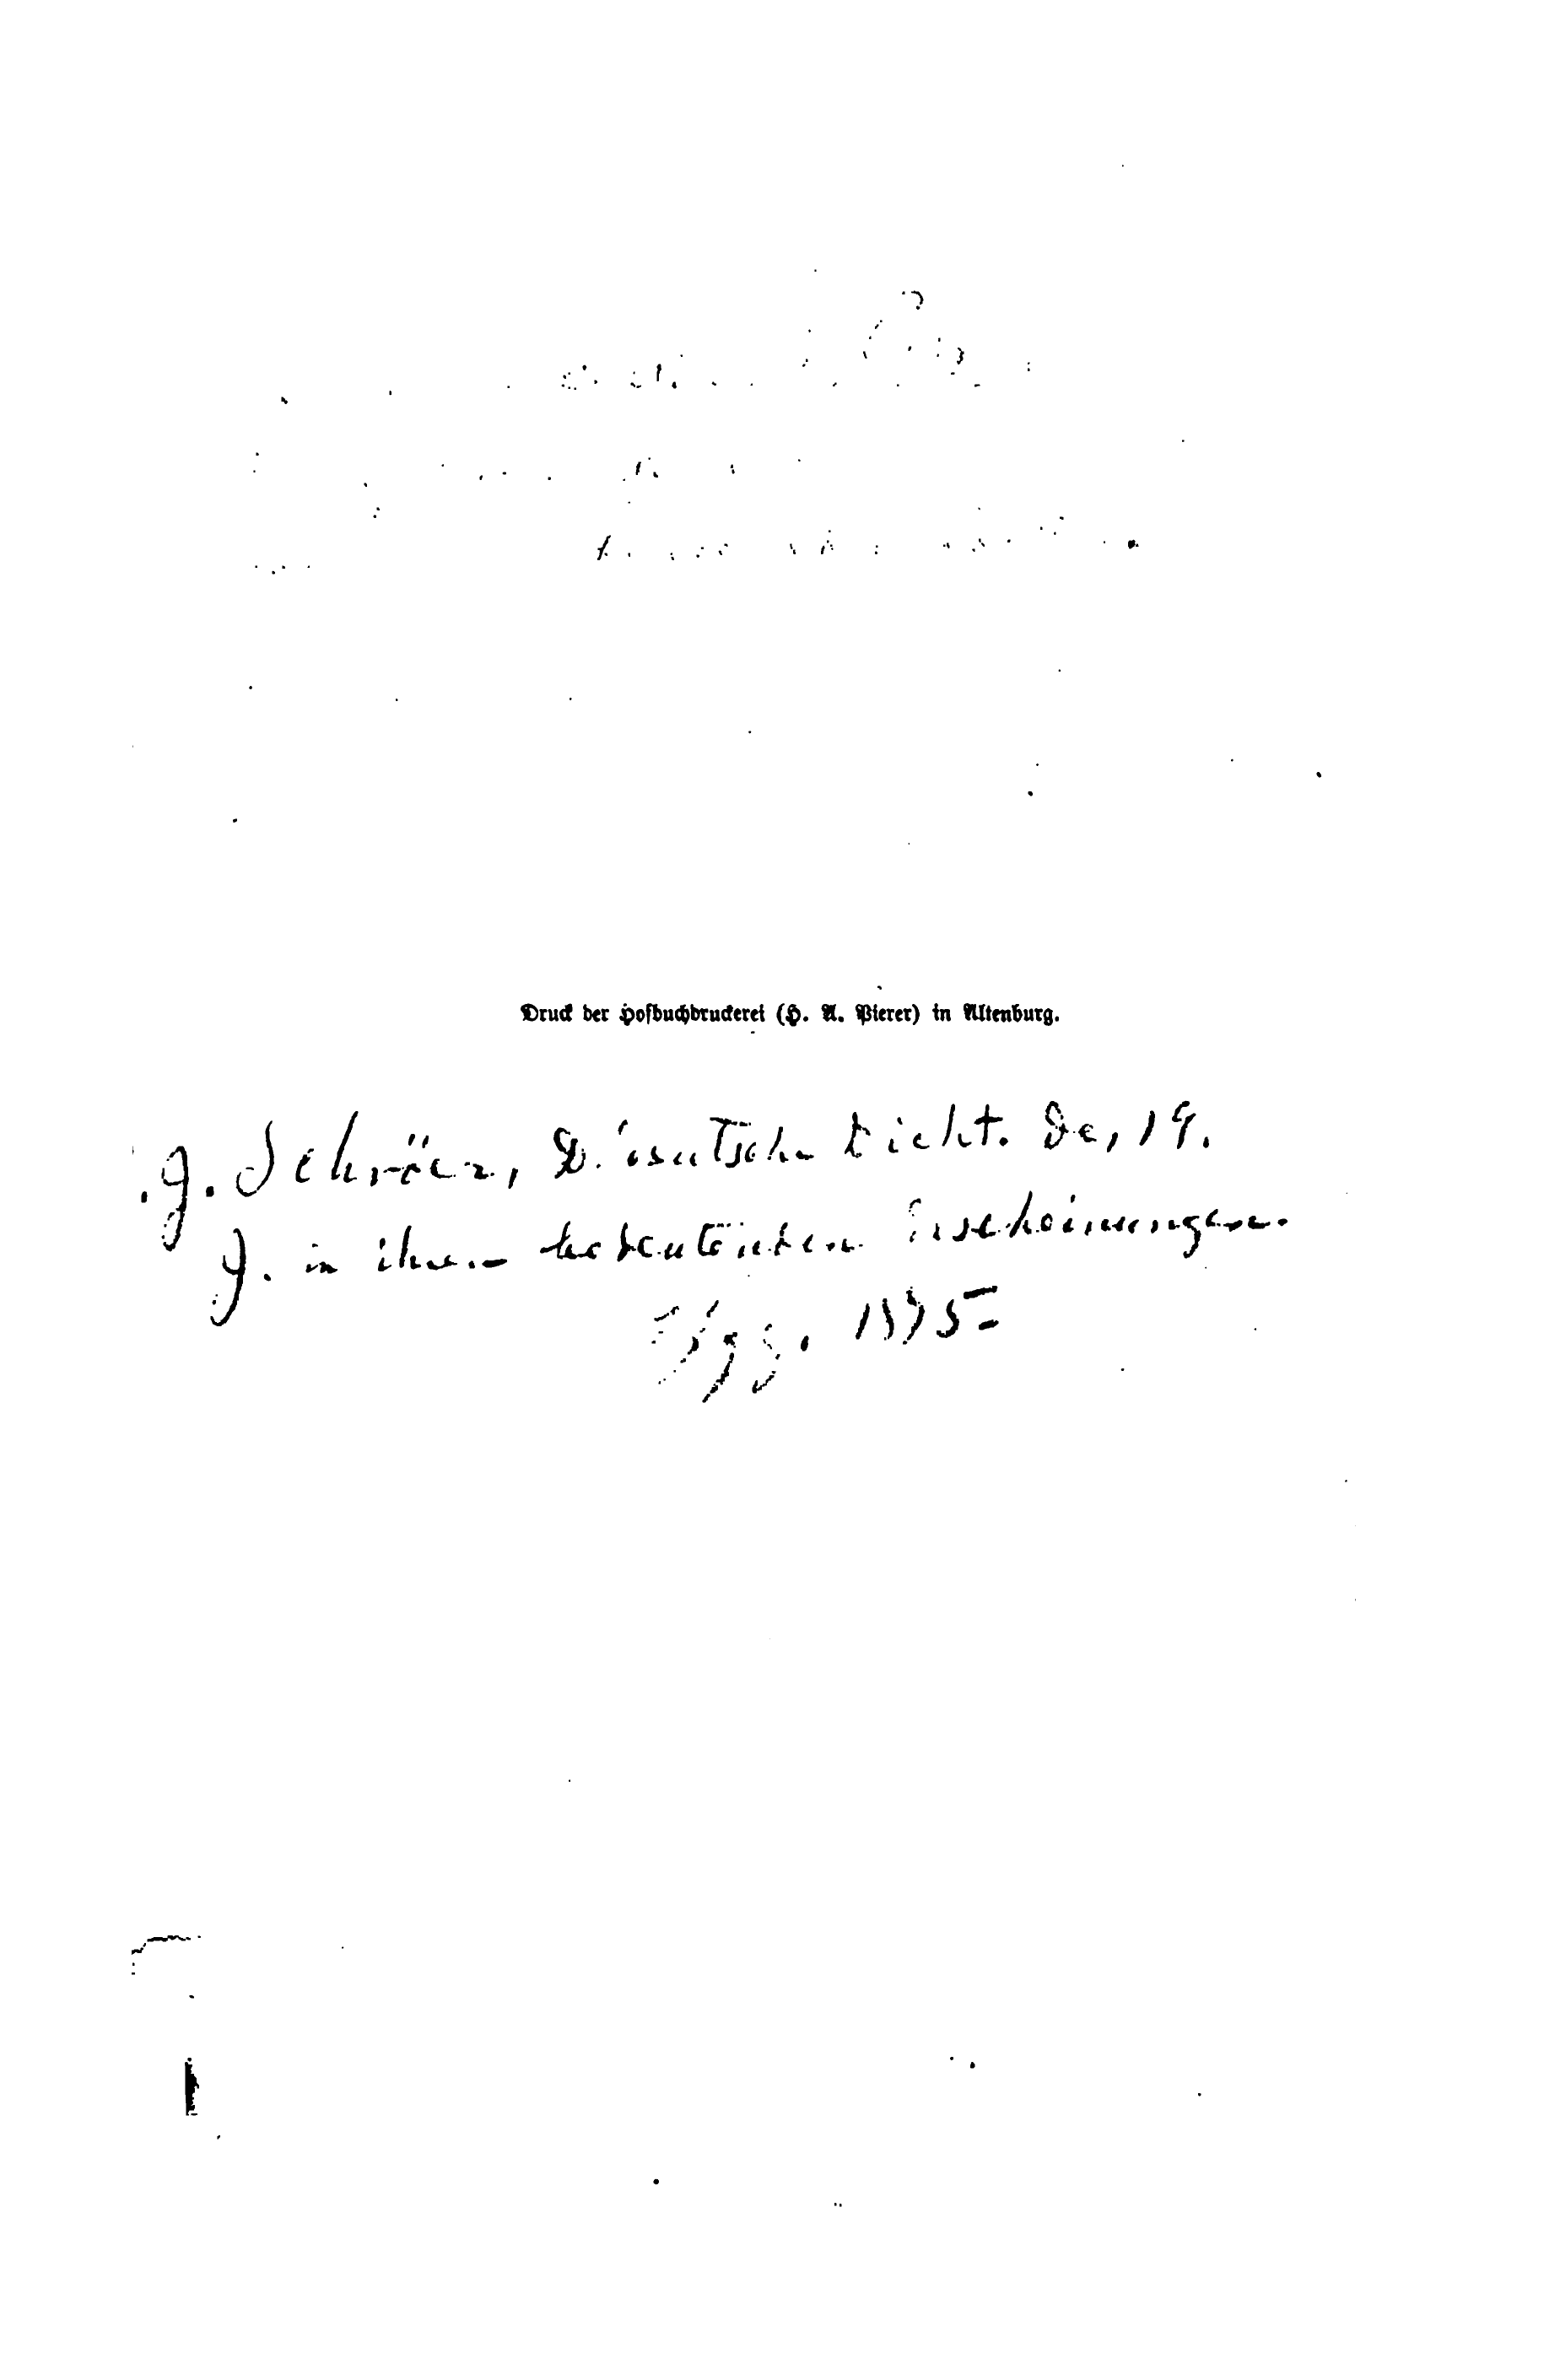 Druck der Hofbuchdruckerei (H. A. Pierer) in Altenburg.
.J. Schröer, D. deutsche Dicht. des 19.
J. in ihren bedeutenden Erscheinungen.
Lpzg. 1875